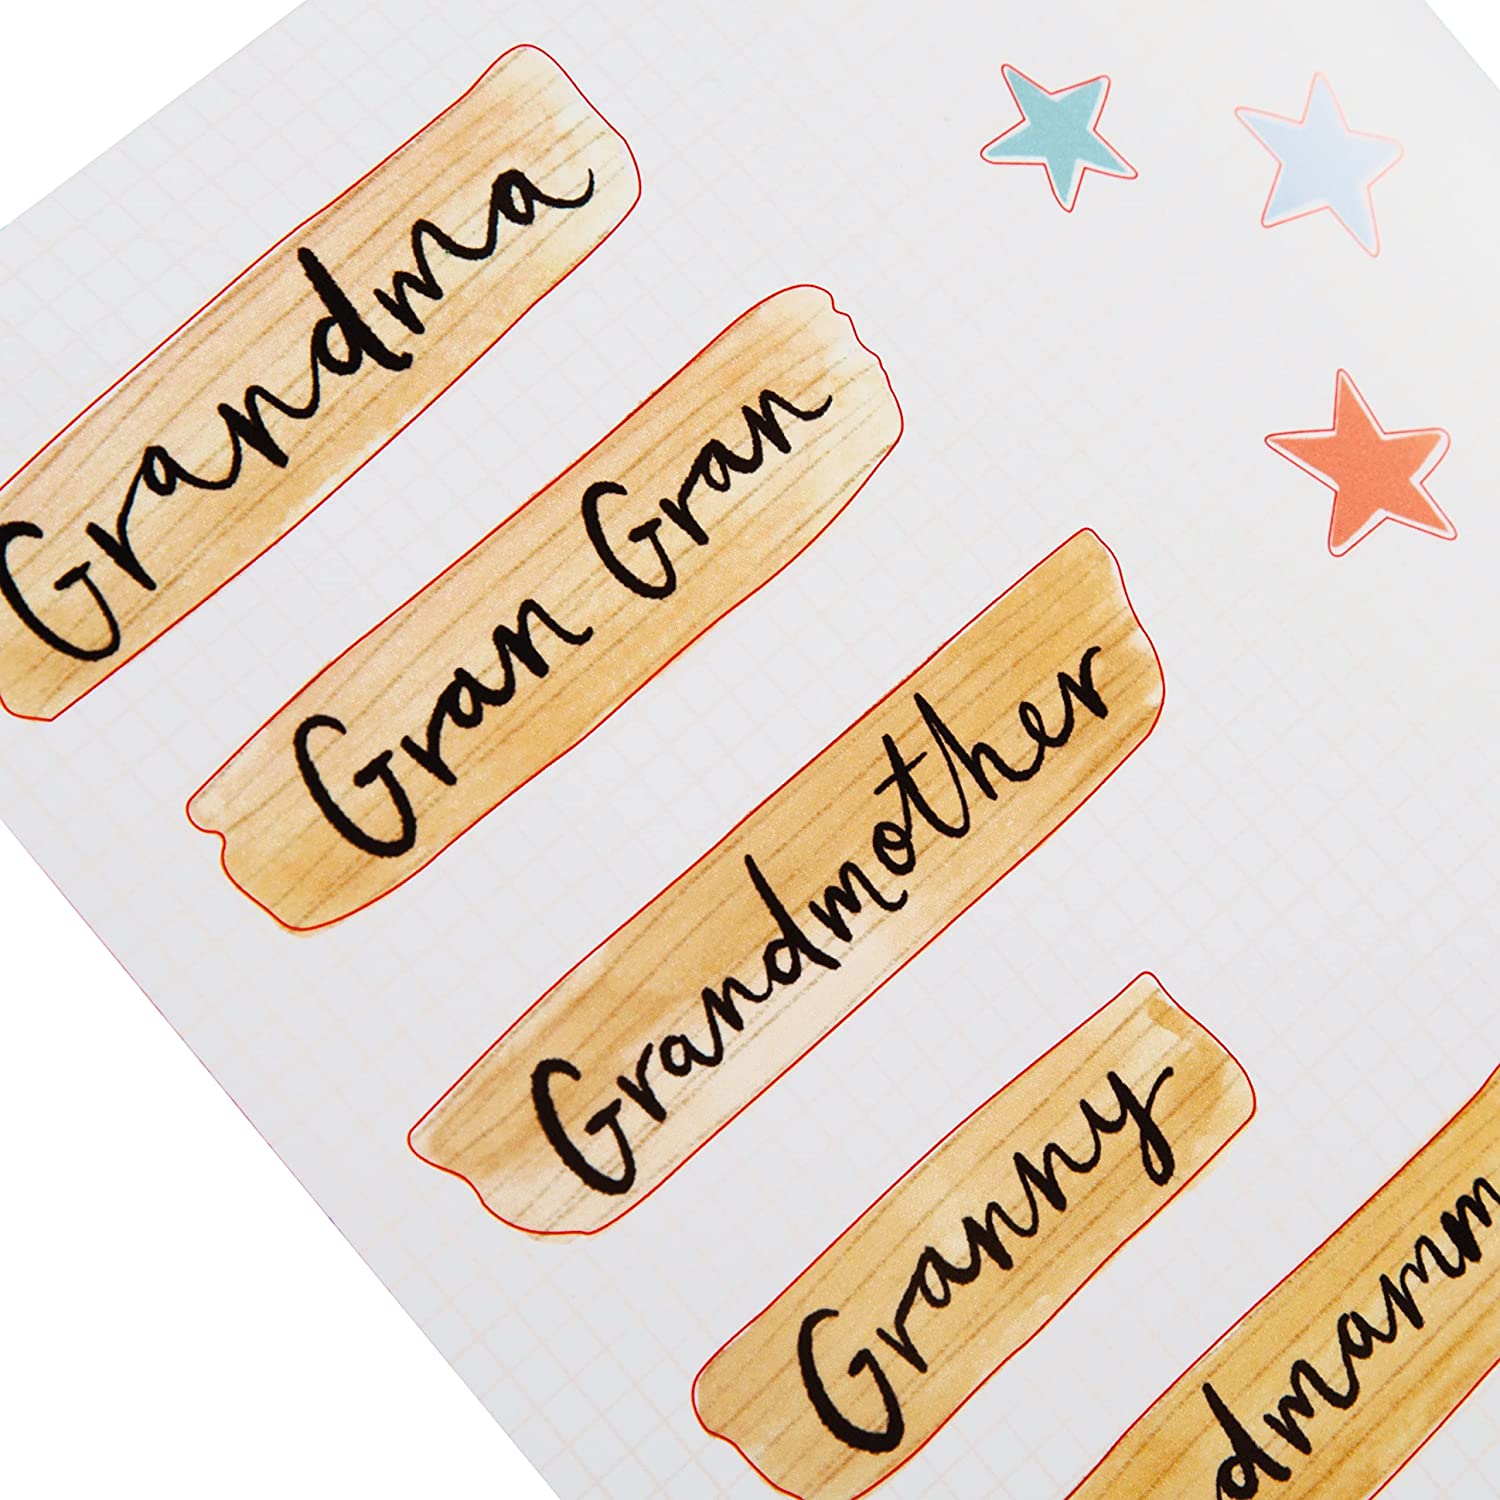 Grandma
Gran Gran
Grandmother
Granny